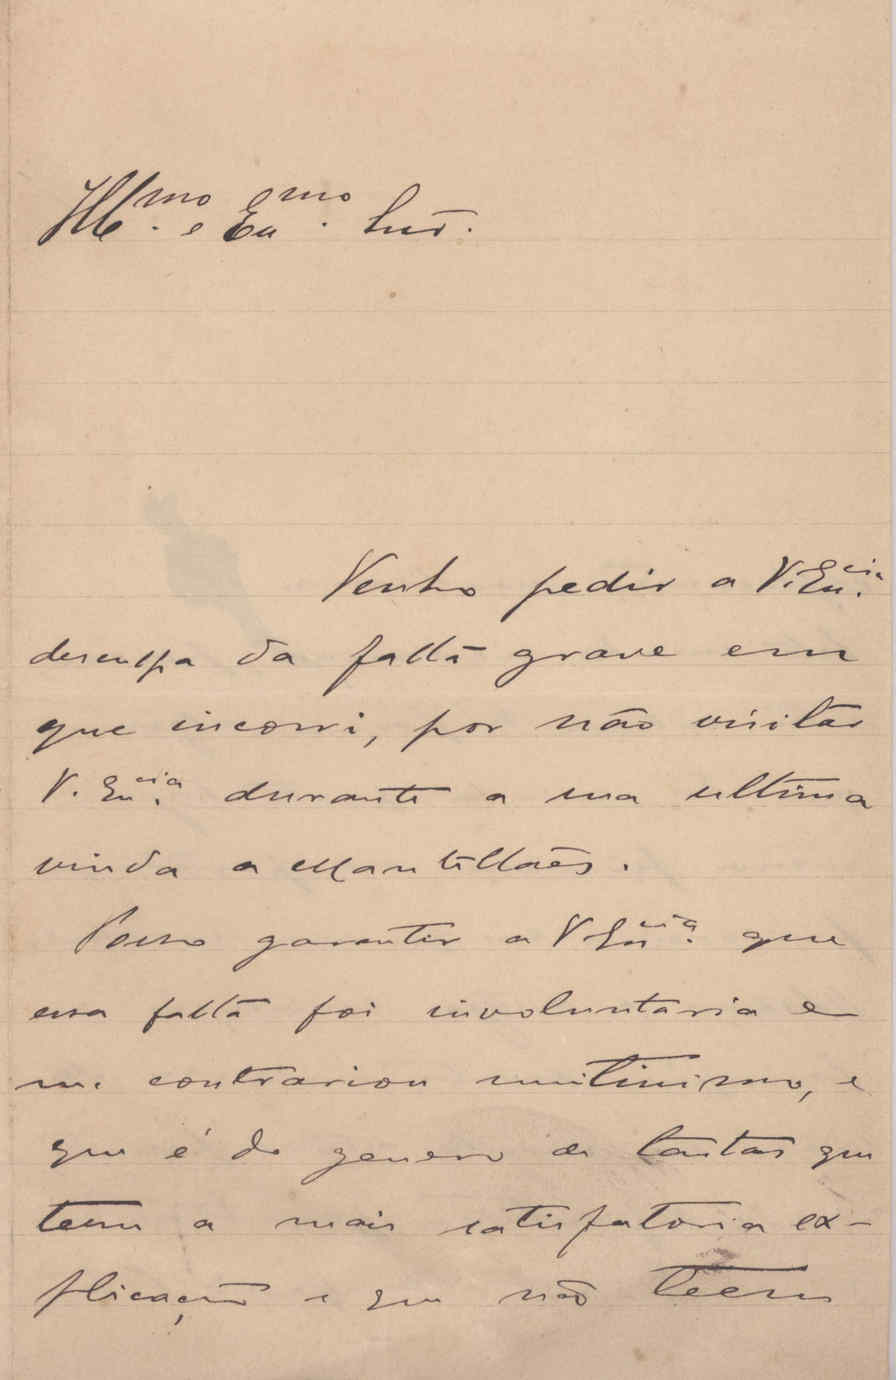 Ill.mo e Ex.mo Snr.
Venho pedir a V. Ex.cia
desculpa da falta grave em
que incorri, por não visitar
V. Ex.cia durante a sua ultima
vinda a Mantellães.
Posso garantir a V Ex.cia que
essa falta foi involuntaria e
me contrariou muitissimo, e
que é do genero de tantas que
teem a mais satisfatoria ex-
plicação e que não teem